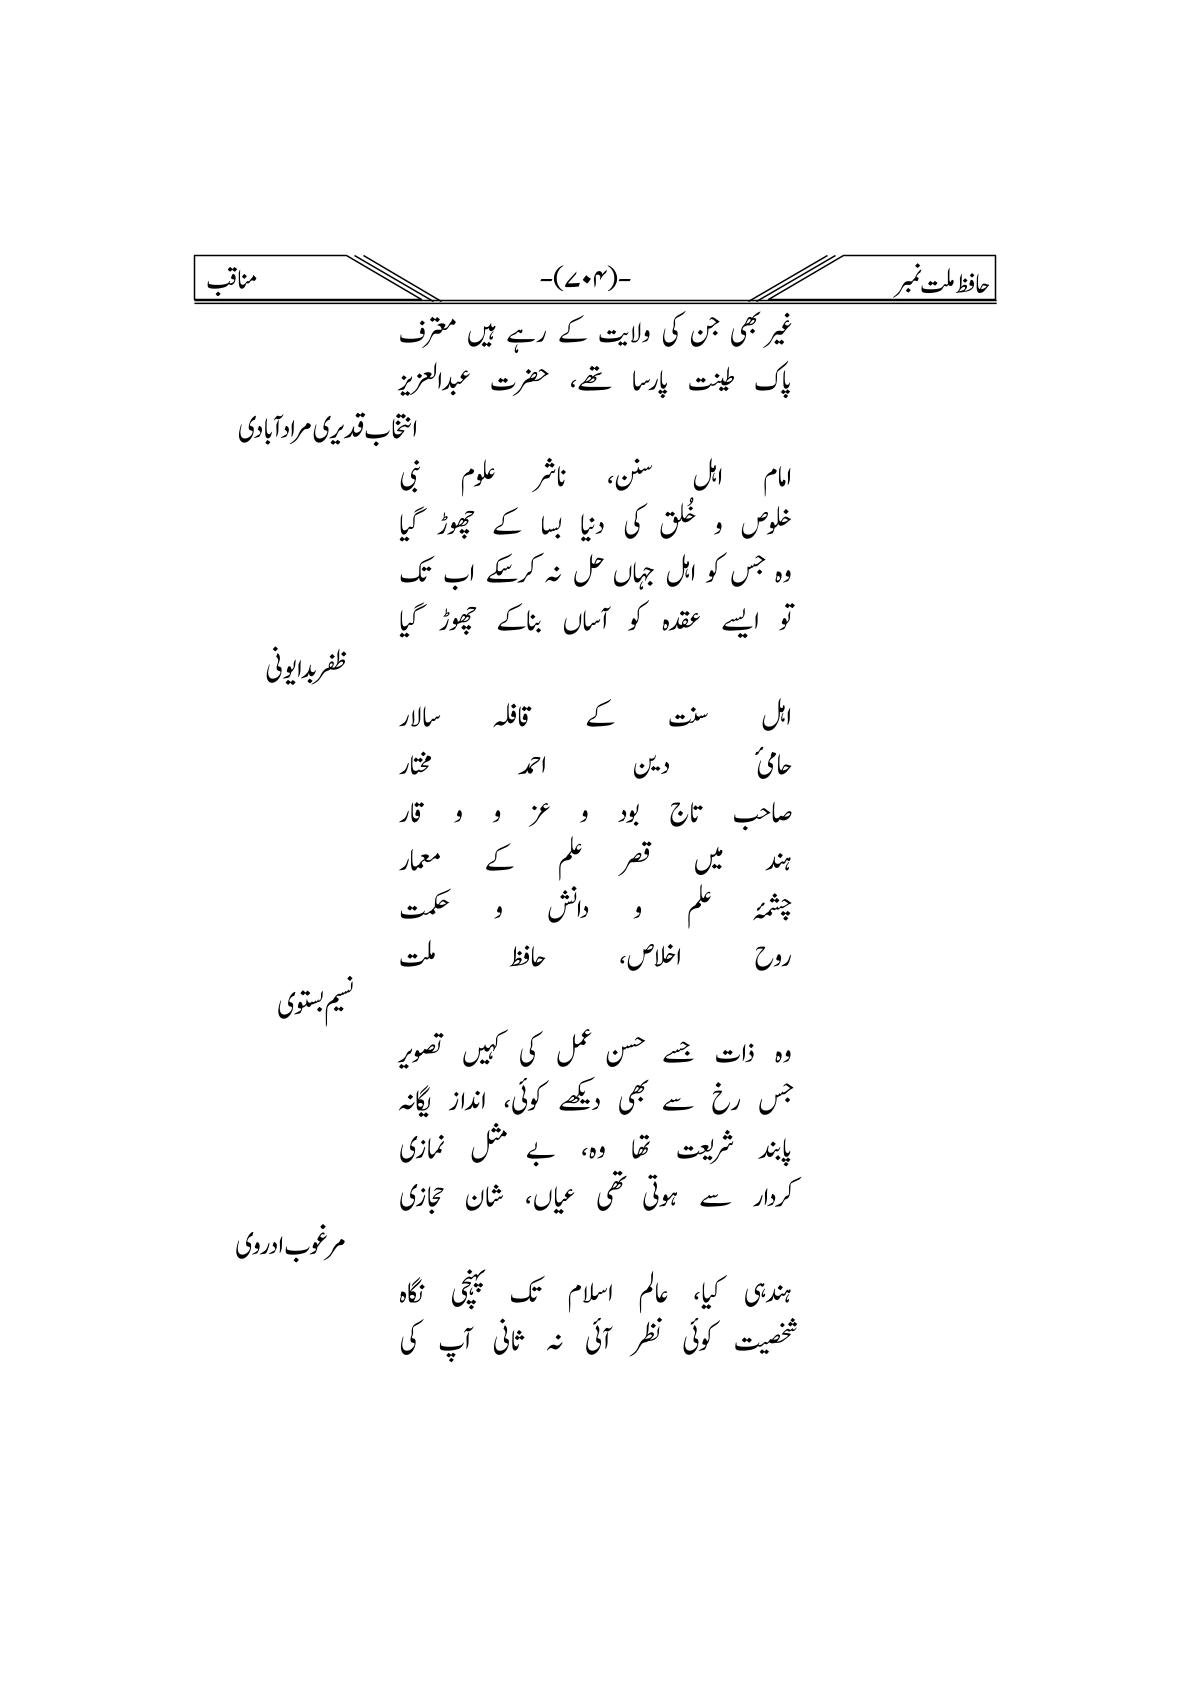 حافظ ملت نمبر -(۷۰۴)- مناقب
غیر بھی جن کی ولایت کے رہے ہیں معترف
پاک طینت پارسا تھے، حضرت عبدالعزیز
انتخاب قدیری مرادآبادی
امام اہل سنن، ناشر علوم نبی
خلوص و خُلق کی دنیا بسا کے چھوڑ گیا
وہ جس کو اہل جہاں حل نہ کرسکے اب تک
تو ایسے عقدہ کو آساں بناکے چھوڑ گیا
ظفر بدایونی
اہل سنت کے قافلہ سالار
حامیٔ دین احمد مختار
صاحب تاج بود و عز و و قار
ہند میں قصر علم کے معمار
چشمۂ علم و دانش و حکمت
روح اخلاص، حافظ ملت
نسیم بستوی
وہ ذات جسے حسن عمل کی کہیں تصویر
جس رخ سے بھی دیکھے کوئی، انداز یگانہ
پابند شریعت تھا وہ، بے مثل نمازی
کردار سے ہوتی تھی عیاں، شان حجازی
مرغوب ادروی
ہندہی کیا، عالم اسلام تک پہنچی نگاہ
شخصیت کوئی نظر آئی نہ ثانی آپ کی